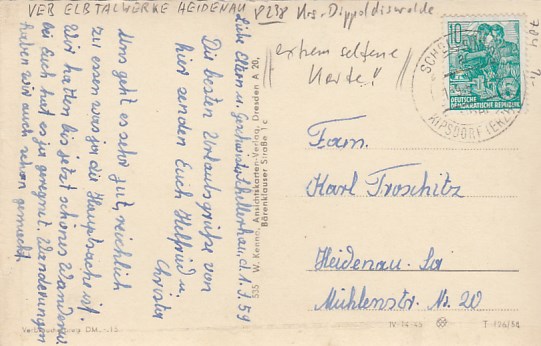 VEB ELBTALWERKE HEIDENAU P238 Krs. Dippoldiswalde
"extrem seltene
Karte!"
Liebe Eltern u. Geschwister! Schellerhau, d. 1.7.59
Die besten Urlaubsgrüße von
hier senden Euch Helfried u.
Christa
Uns geht es sehr gut, reichlich
zu essen was ja die Hauptsache ist.
Wir hatten bis jetzt schönes Wanderw.
bei Euch hat es ja geregnet. Wanderungen
haben wir auch schon gemacht.
535 W. Kenne, Ansichtskarten-Verlag, Dresden A 20,
Bärenklauser Straße 1 c
10
DEUTSCHE
DEMOKRATISCHE REPUBLIK
KIPSDORF (ERZ
Fam.
Karl Troschitz
Heidenau-Sa
Mühlenstr. Nr. 20
IV-14-45